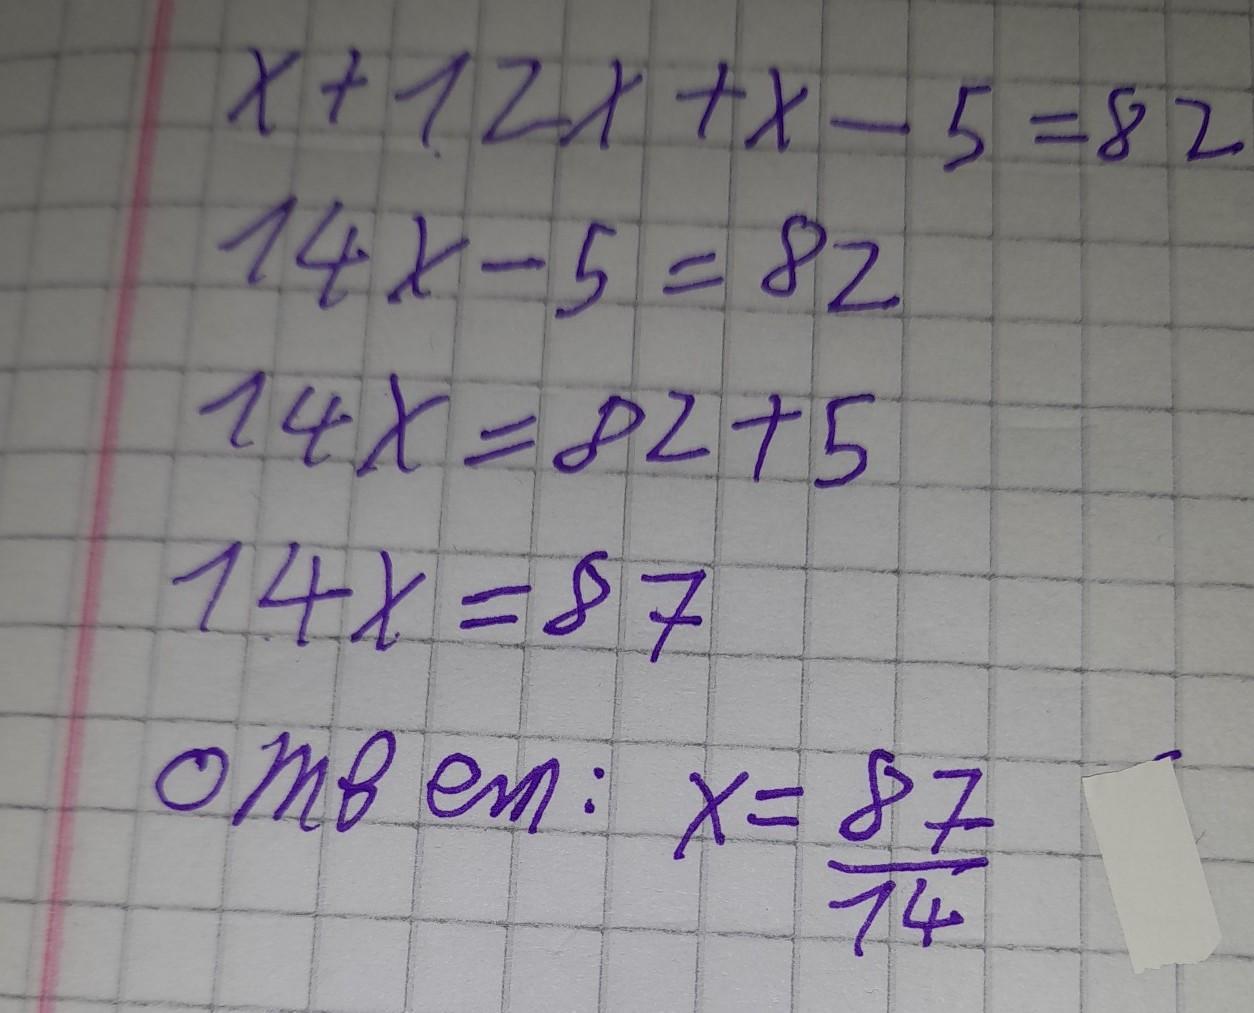 x+12x+x-5=82
14x-5=82
14x=82+5
14x=87
ответ: x=87/14